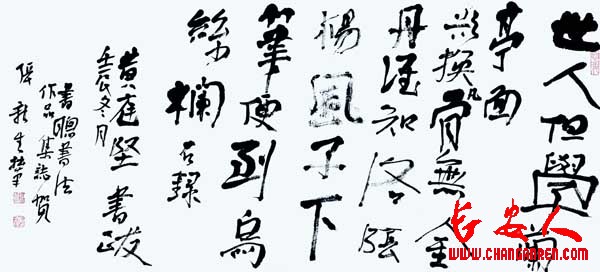 世人但學蘭
亭面
欲換凡骨無金
丹誰知洛陽
楊風子下
筆便到烏
絲欄 右錄
黃庭堅書跋
壬辰冬月
書聰書法
作品集誌賀
长安人
WWW.CHANGANREN.COM